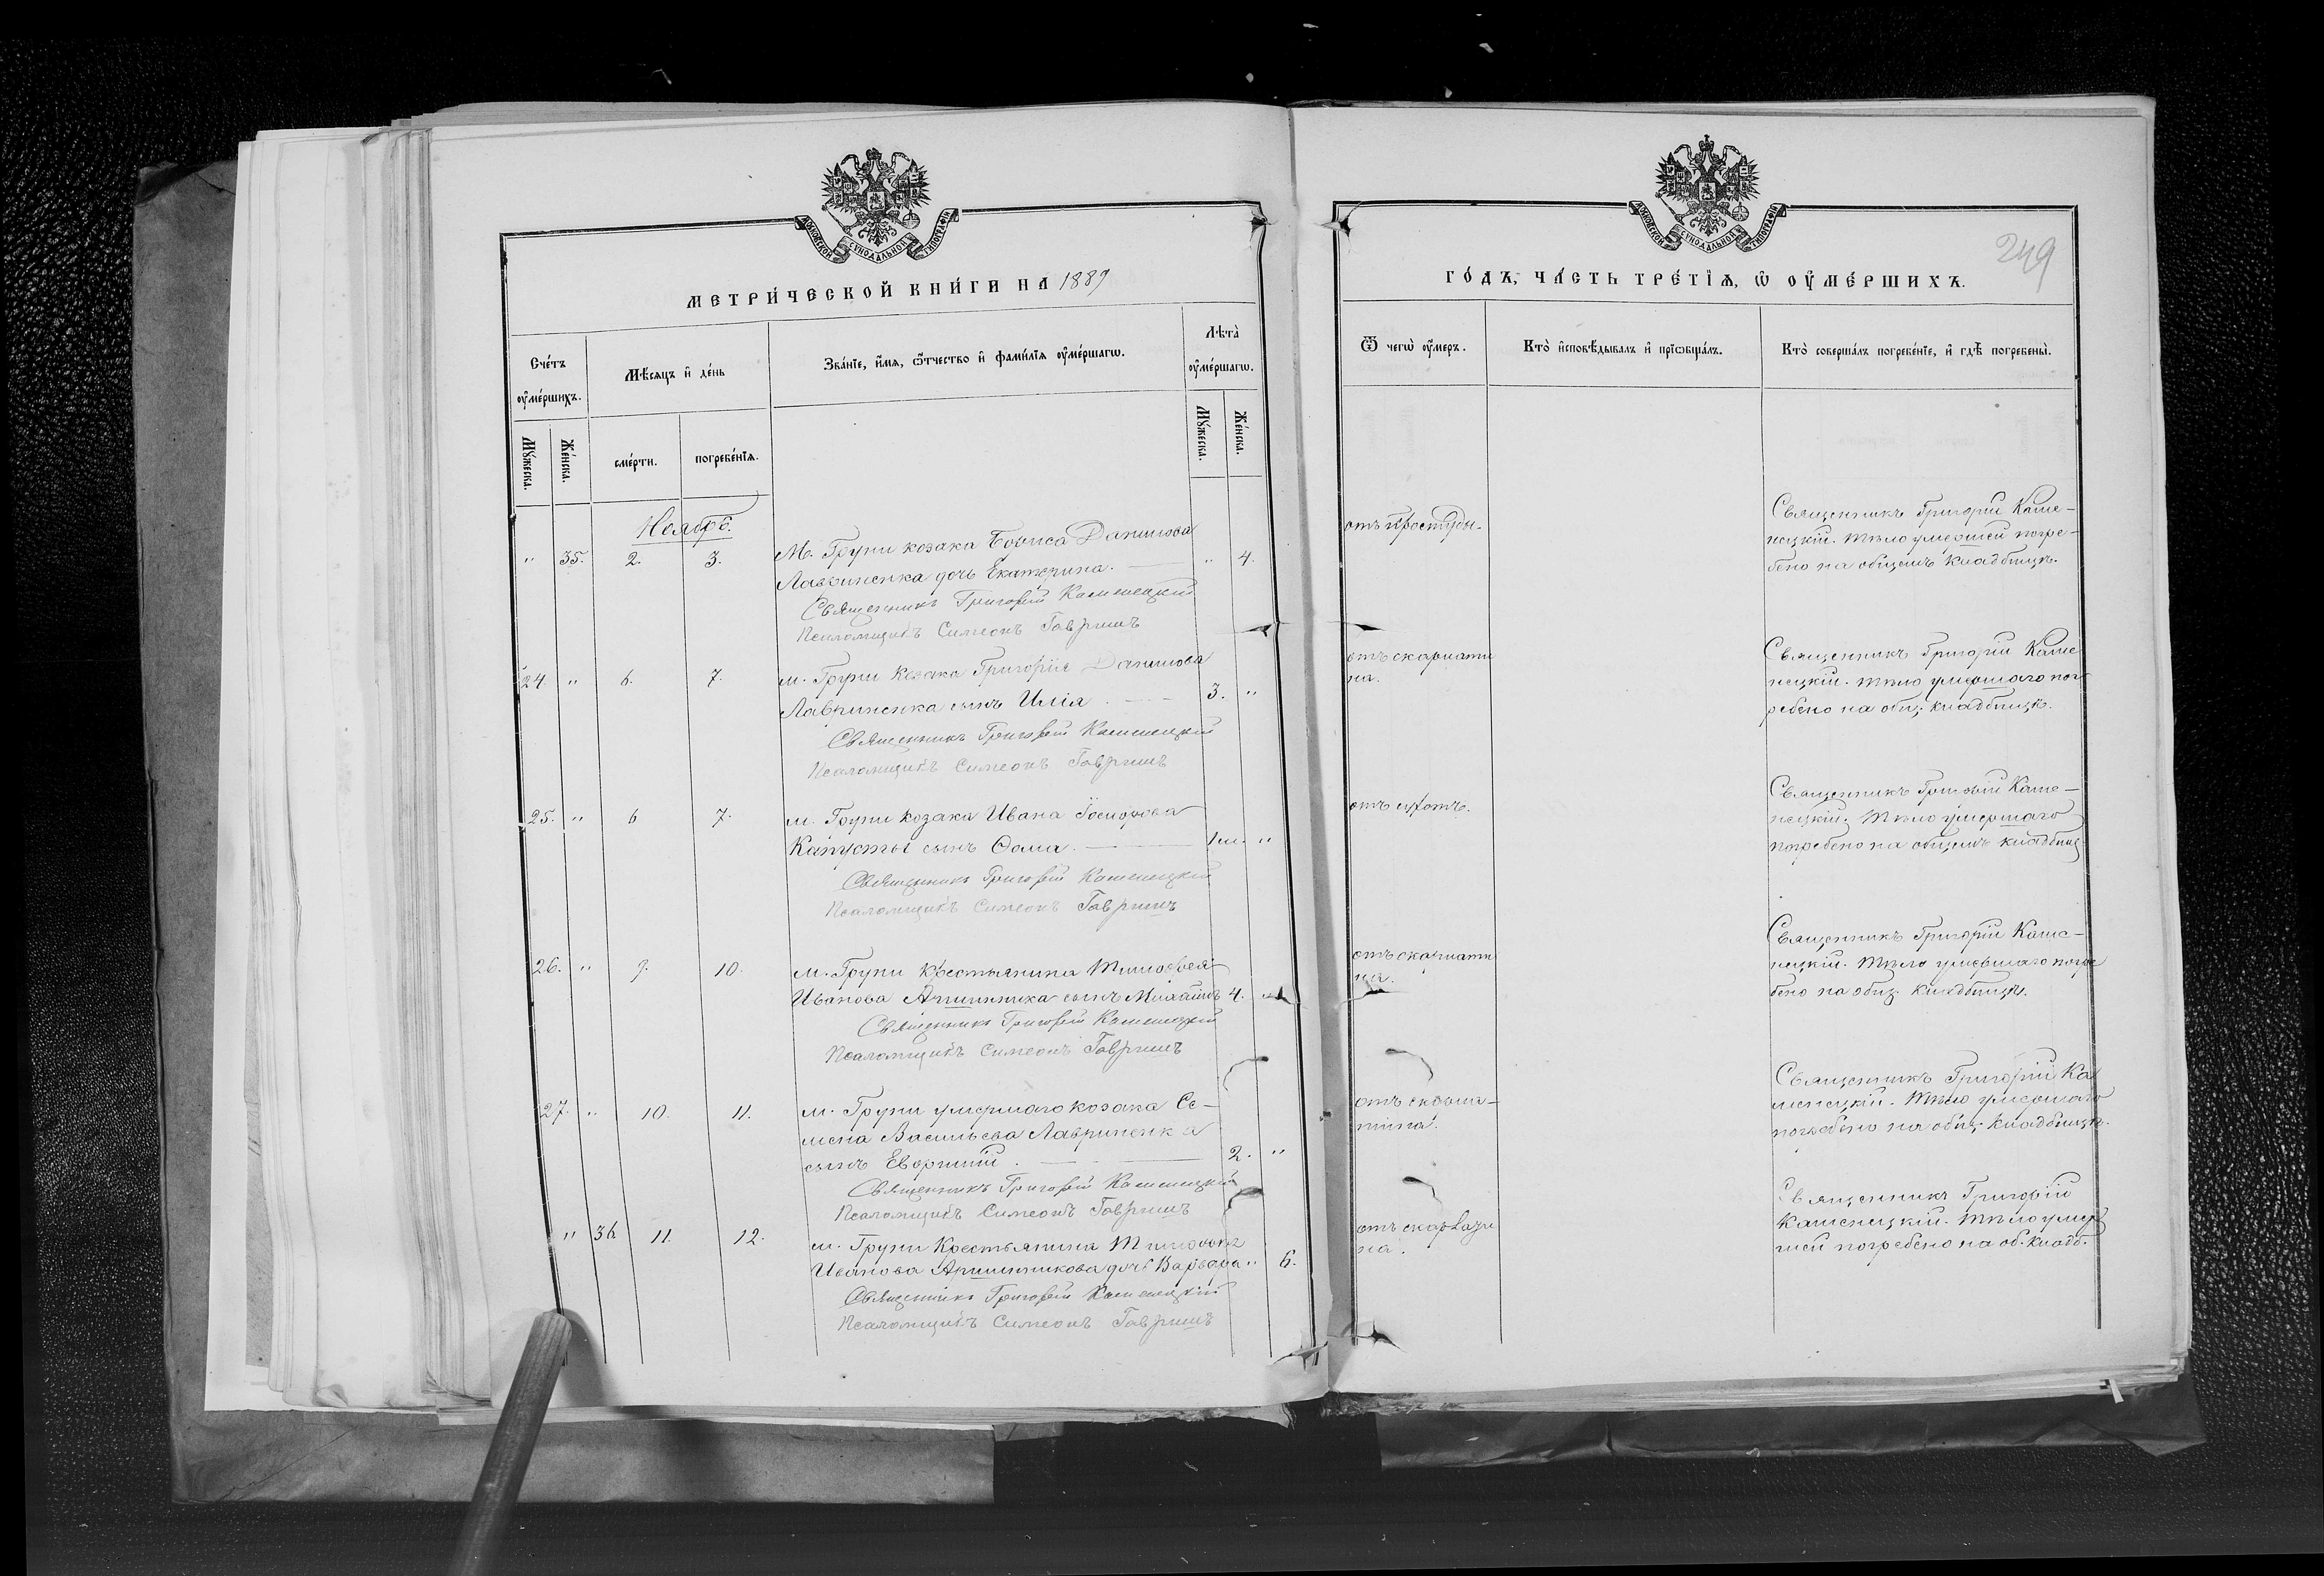 МОСКОВСКОЙ СѴНОДАЛЬНОЙ ТИПОГРАФІИ
МЕТРИ́ЧЕСКОЙ КНИ́ГИ НА 1889
Сче́тъ оу҆ме́ршихъ.
Мѣ́сяцъ и҆ де́нь
Зва́нїе, и҆́мя, ѻ҆́тчество и҆ фами́лїя оу҆ме́ршагѡ.
Лѣта̀ оу҆ме́ршагѡ.
Мꙋ́жеска.
Же́нска.
сме́рти.
погребе́нїѧ.
Мꙋ́жеска.
Же́нска.
Ноябрь.
" 35. 2. 3. М. Груни козака Бориса Данилова
Лавриненка дочь Екатерина. — " 4.
Священникъ Григорій Каменецкій
Псаломщикъ Симеонъ Гавришъ
24. " 6. 7. м. Груни Козака Григорія Данилова
Лавриненка сынъ Илія. — 3. "
Священникъ Григорій Каменецкій
Псаломщикъ Симеонъ Гавришъ
25. " 6 7. м. Груни козака Ивана
Капусты сынъ Ѳома. — 1м. "
Священникъ Григорій Каменецкій
Псаломщикъ Симеонъ Гавришъ
26. " 9. 10. м. Груни крестьянина Тимоѳея
Иванова сынъ 4. "
Священникъ Григорій Каменецкій
Псаломщикъ Симеонъ Гавришъ
27. " 10. 11. м. Груни умершаго козака Се-
мена Васильева Лавриненка
сынъ — 2. "
Священникъ Григорій Каменецкій
Псаломщикъ Симеонъ Гавришъ
" 36 11. 12. м. Груни Крестьянина Тимоѳея
Иванова дочь Варвара " 6.
Священникъ Григорій Каменецкій
Псаломщикъ Симеонъ Гавришъ
МОСКОВСКОЙ СѴНОДАЛЬНОЙ ТИПОГРАФІИ
249
ГО́ДЪ, ЧА́СТЬ ТРЕ́ТЇѦ, Ѡ҆ ОУ҆МЕ́РШИХЪ.
Ѿ чегѡ̀ оу҆́меръ.
Кто̀ и҆сповѣ́дывалъ и҆ прїѡбща́лъ.
Кто̀ соверша́лъ погребе́нїе, и҆ гдѣ̀ погребены̀.
отъ простуды.
Священникъ Григорій Каме-
нецкій. Тѣло умершей погре-
бено на общемъ кладбищѣ.
отъ скарлати
на.
Священникъ Григорій Каме
нецкій. Тѣло умершаго пог-
ребено на общ. кладбищѣ.
Священникъ Григорій Каме-
нецкій. Тѣло умершаго
погребено на общемъ кладбищ
отъ скарлати
на.
Священникъ Григорій Каме-
нецкій. Тѣло умершаго погре
бено на общ. кладбищѣ.
отъ скарла-
тина.
Священникъ Григорій Ка
менецкій. Тѣло умершаго
погребено на общ. кладбищѣ.
Священникъ Григорій
Каменецкій. Тѣло умер
шей погребено на об. кладб.